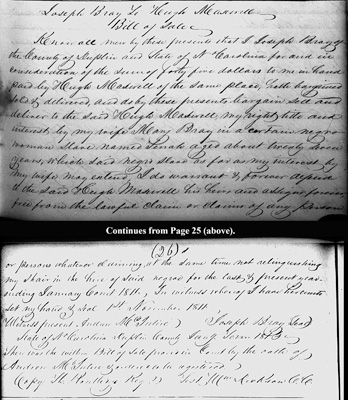 Joseph Bray To Hugh Maxwell
Bill of Sale
Know all men by these presents that I Joseph Bray of
the County of Duplin and State of N Carolina for and in
consideration of the Sum of forty five dollars to me in hand
paid by Hugh Maxwell of the same place, hath bargained
sold & delivered and do by these presents bargain sell and
deliver to the said Hugh Maxwell, my right title and
interest by my wife Mary Bray in a certain negro
woman slave named aged about twenty seven
years, which said negro stand as far as my interest by
my wife may extend I do warrant & forever defend
to the said Hugh Maxwell his heirs and assigns forever
free from the lawful claim or claims of any person
Continues from Page 25 (above).
(26)
or persons whatever claiming, at the same time not relinquishing
my share in the hire of said negro for the last & present year
ending January Court 1814, In witness whereof I have hereunto
set my hand & seal 1st November 1811
Witness present Andrew McIntire Joseph Bray Seal
State of No Carolina Duplin County Term
Then was the within Bill of Sale proven in Court by the oath of
Andrew McIntire & ordered to be registered
Copy Reg Test. Wm Dickson CC